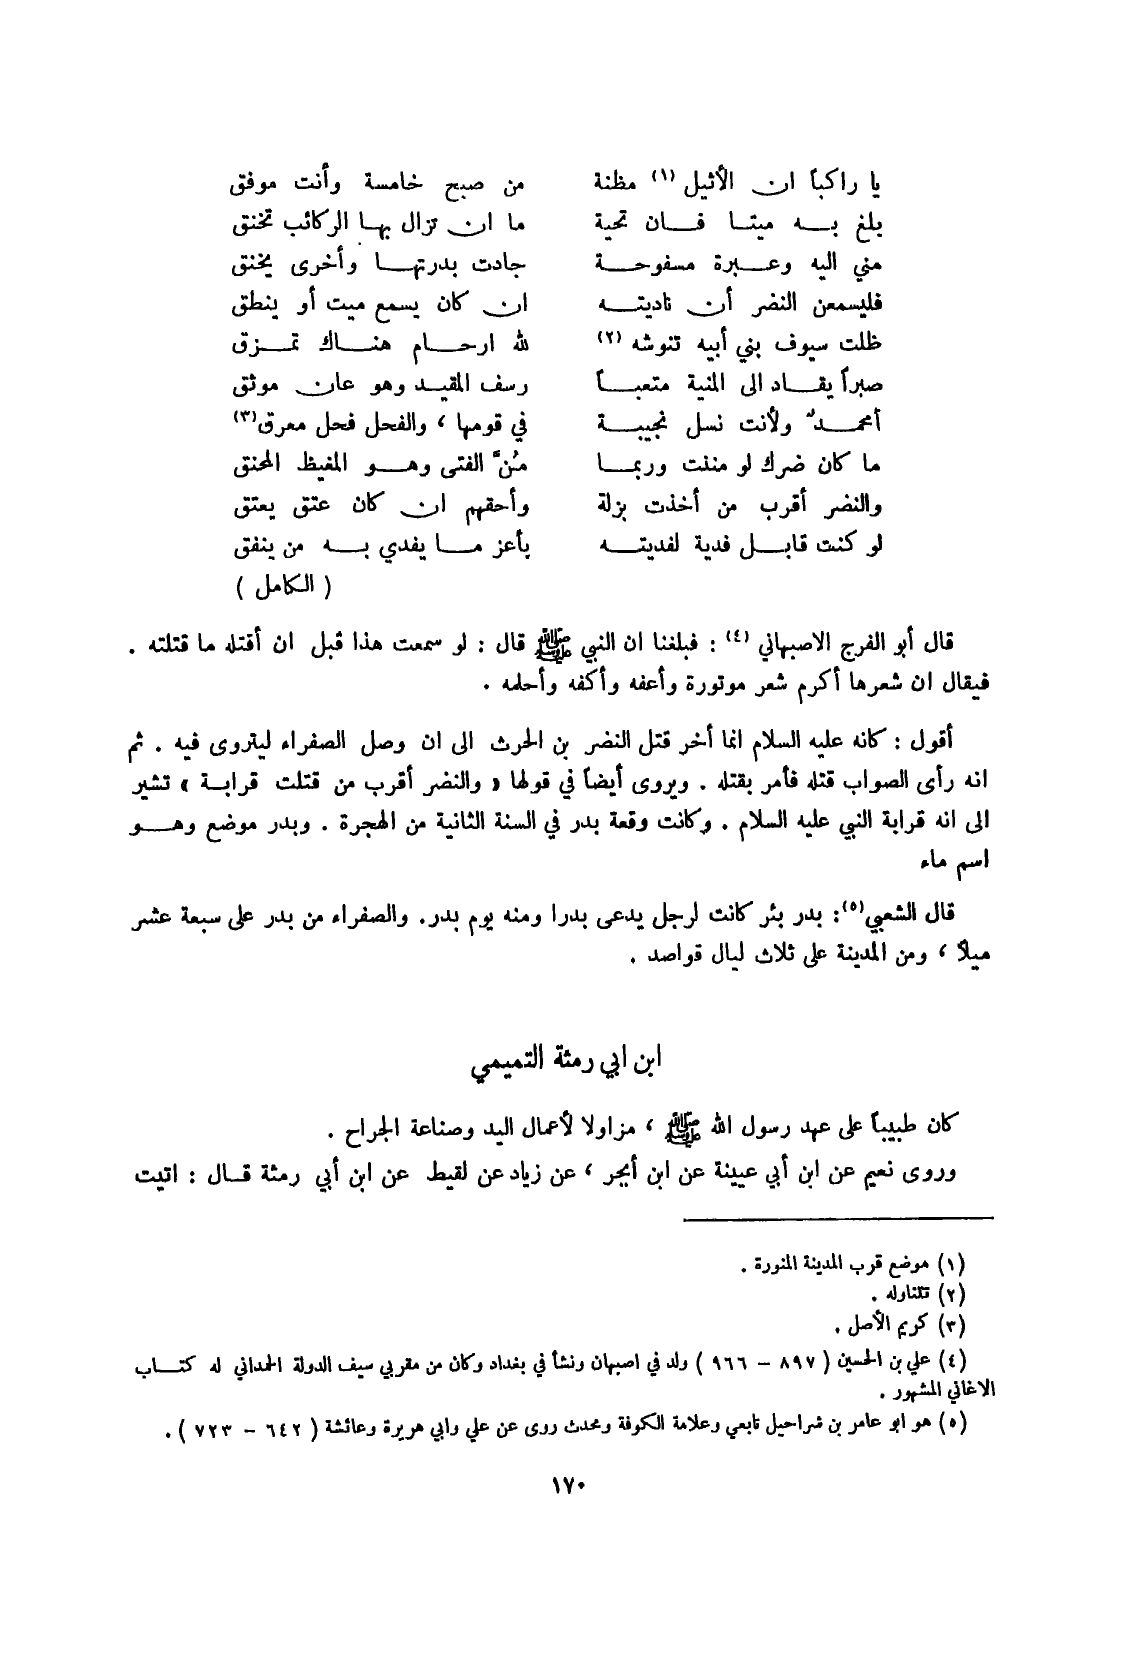 يا راكباً ان الأثيل (١) مظنة من صبح خامسة وأنت موفق
بلغ به ميتا فان تحية ما ان تزال بها الركائب تخنق
مني اليه وعبرة مسفوحة جادت بدرتها وأخرى يخنق
فليسمعن النضر أن ناديته ان كان يسمع ميت أو ينطق
ظلت سيوف بني أبيه تنوشه (٢) لله ارحام هناك تمزق
صبراً يقاد الى المنية متعباً رسف المقيد وهو عان موثق
أمحمد ولأنت نسل نجيبة في قومها ، والفحل فحل معرق(٣)
ما كان ضرك لو مننت وربما منَّ الفتى وهو المغيظ المحنق
والنضر أقرب من أخذت بزلة وأحقهم ان كان عتق يعتق
لو كنت قابل فدية لفديته بأعز ما يفدي به من ينفق
( الكامل )
قال أبو الفرج الاصبهاني (٤) : فبلغنا ان النبي ﷺ قال : لو سمعت هذا قبل ان أقتله ما قتلته .
فيقال ان شعرها أكرم شعر موتورة وأعفه وأكفه وأحلمه .
أقول : كانه عليه السلام انما أخر قتل النضر بن الحرث الى ان وصل الصفراء ليتروى فيه . ثم
انه رأى الصواب قتله فأمر بقتله . ويروى أيضاً في قولها « والنضر أقرب من قتلت قرابة » تشير
الى انه قرابة النبي عليه السلام . وكانت وقعة بدر في السنة الثانية من الهجرة . وبدر موضع وهو
اسم ماء
قال الشعبي(٥): بدر بئر كانت لرجل يدعى بدرا ومنه يوم بدر. والصفراء من بدر على سبعة عشر
ميلاً ، ومن المدينة على ثلاث ليال قواصد .
ابن ابي رمثة التميمي
كان طبيباً على عهد رسول الله ﷺ ، مزاولا لأعمال اليد وصناعة الجراح .
وروى نعيم عن ابن أبي عيينة عن ابن أبجر ، عن زياد عن لقيط عن ابن أبي رمثة قال : اتيت
(١) موضع قرب المدينة المنورة .
(٢) تتناوله .
(٣) كريم الأصل .
(٤) علي بن الحسين ( ٨٩٧ – ٩٦٦ ) ولد في اصبهان ونشأ في بغداد وكان من مقربي سيف الدولة الحمداني له كتاب
الاغاني المشهور .
(٥) هو ابو عامر بن شراحيل تابعي وعلامة الكوفة ومحدث روى عن علي وابي هريرة وعائشة ( ٦٤٢ – ٧٢٣ ) .
١٧٠